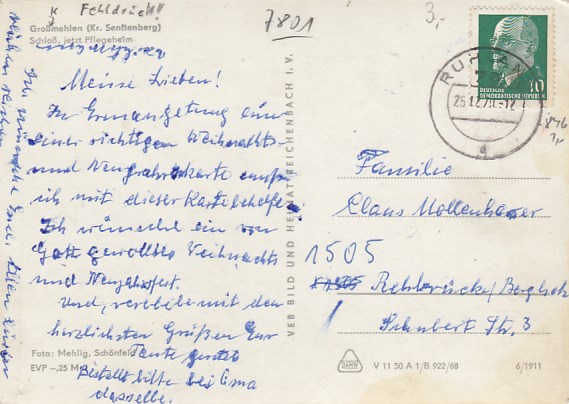 Fehldruck!!
7801
3,-
Großmehlen (Kr. Senftenberg)
Schloß, jetzt Pflegeheim
Meine Lieben!
In Ermangelung eine
einer richtigen Weihnachts-
und Neujahrskarte muß
ich mit dieser Karte behelfen
Ich wünsche ein von
Gott gewolltes Weihnachts
und Neujahrsfest.
Und, verbleibe mit den
herzlichsten Grüßen Eure
Tante
Bestellt bitte bei Oma
dasselbe.
Ich wünsche Euch allen
Foto: Mehlig, Schönfeld
EVP -,25 M
VEB BILD UND HEIMAT REICHENBACH I. V.
DEUTSCHE
DEMOKRATISCHE REPUBLIK
10
RUHLAND
25.12.70.-12
Familie
Claus Mollenhauer
1505
Rehbrücke/Bergholz
Schubert Str. 3
V 11 50 A 1/B 922/68
6/1911